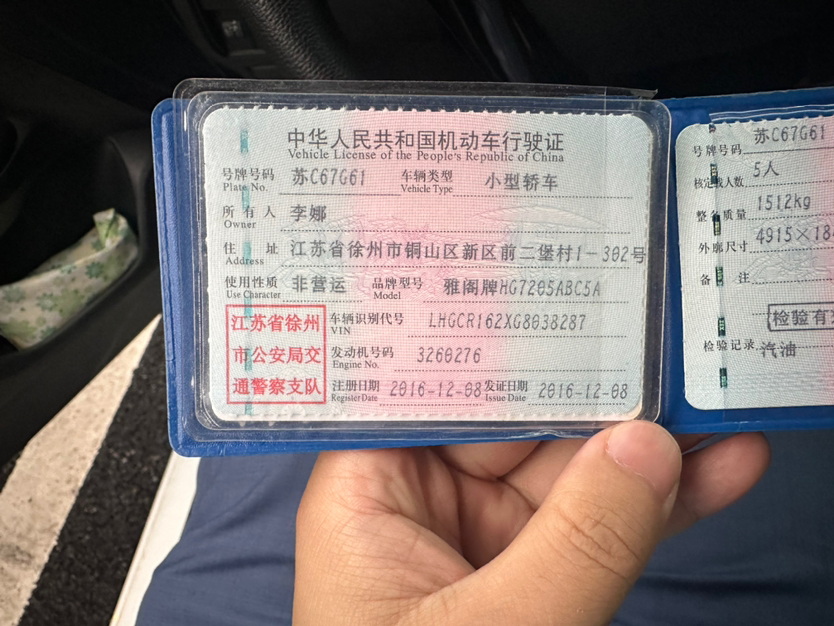 中华人民共和国机动车行驶证
Vehicle License of the People's Republic of China
号牌号码 苏C67G61 车辆类型 小型轿车
Plate No. Vehicle Type
所有人 李娜
Owner
住址 江苏省徐州市铜山区新区前二堡村1-302号
Address
使用性质 非营运 品牌型号 雅阁牌HG7205ABC5A
Use Character Model
江苏省徐州
市公安局交
通警察支队
车辆识别代号 LHGCR162XG8038287
VIN
发动机号码 3260276
Engine No.
注册日期 2016-12-08 发证日期 2016-12-08
Register Date Issue Date
号牌号码 苏C67G61
核定载人数 5人
整备质量 1512kg
外廓尺寸 4915×184
备注
检验有
检验记录 汽油